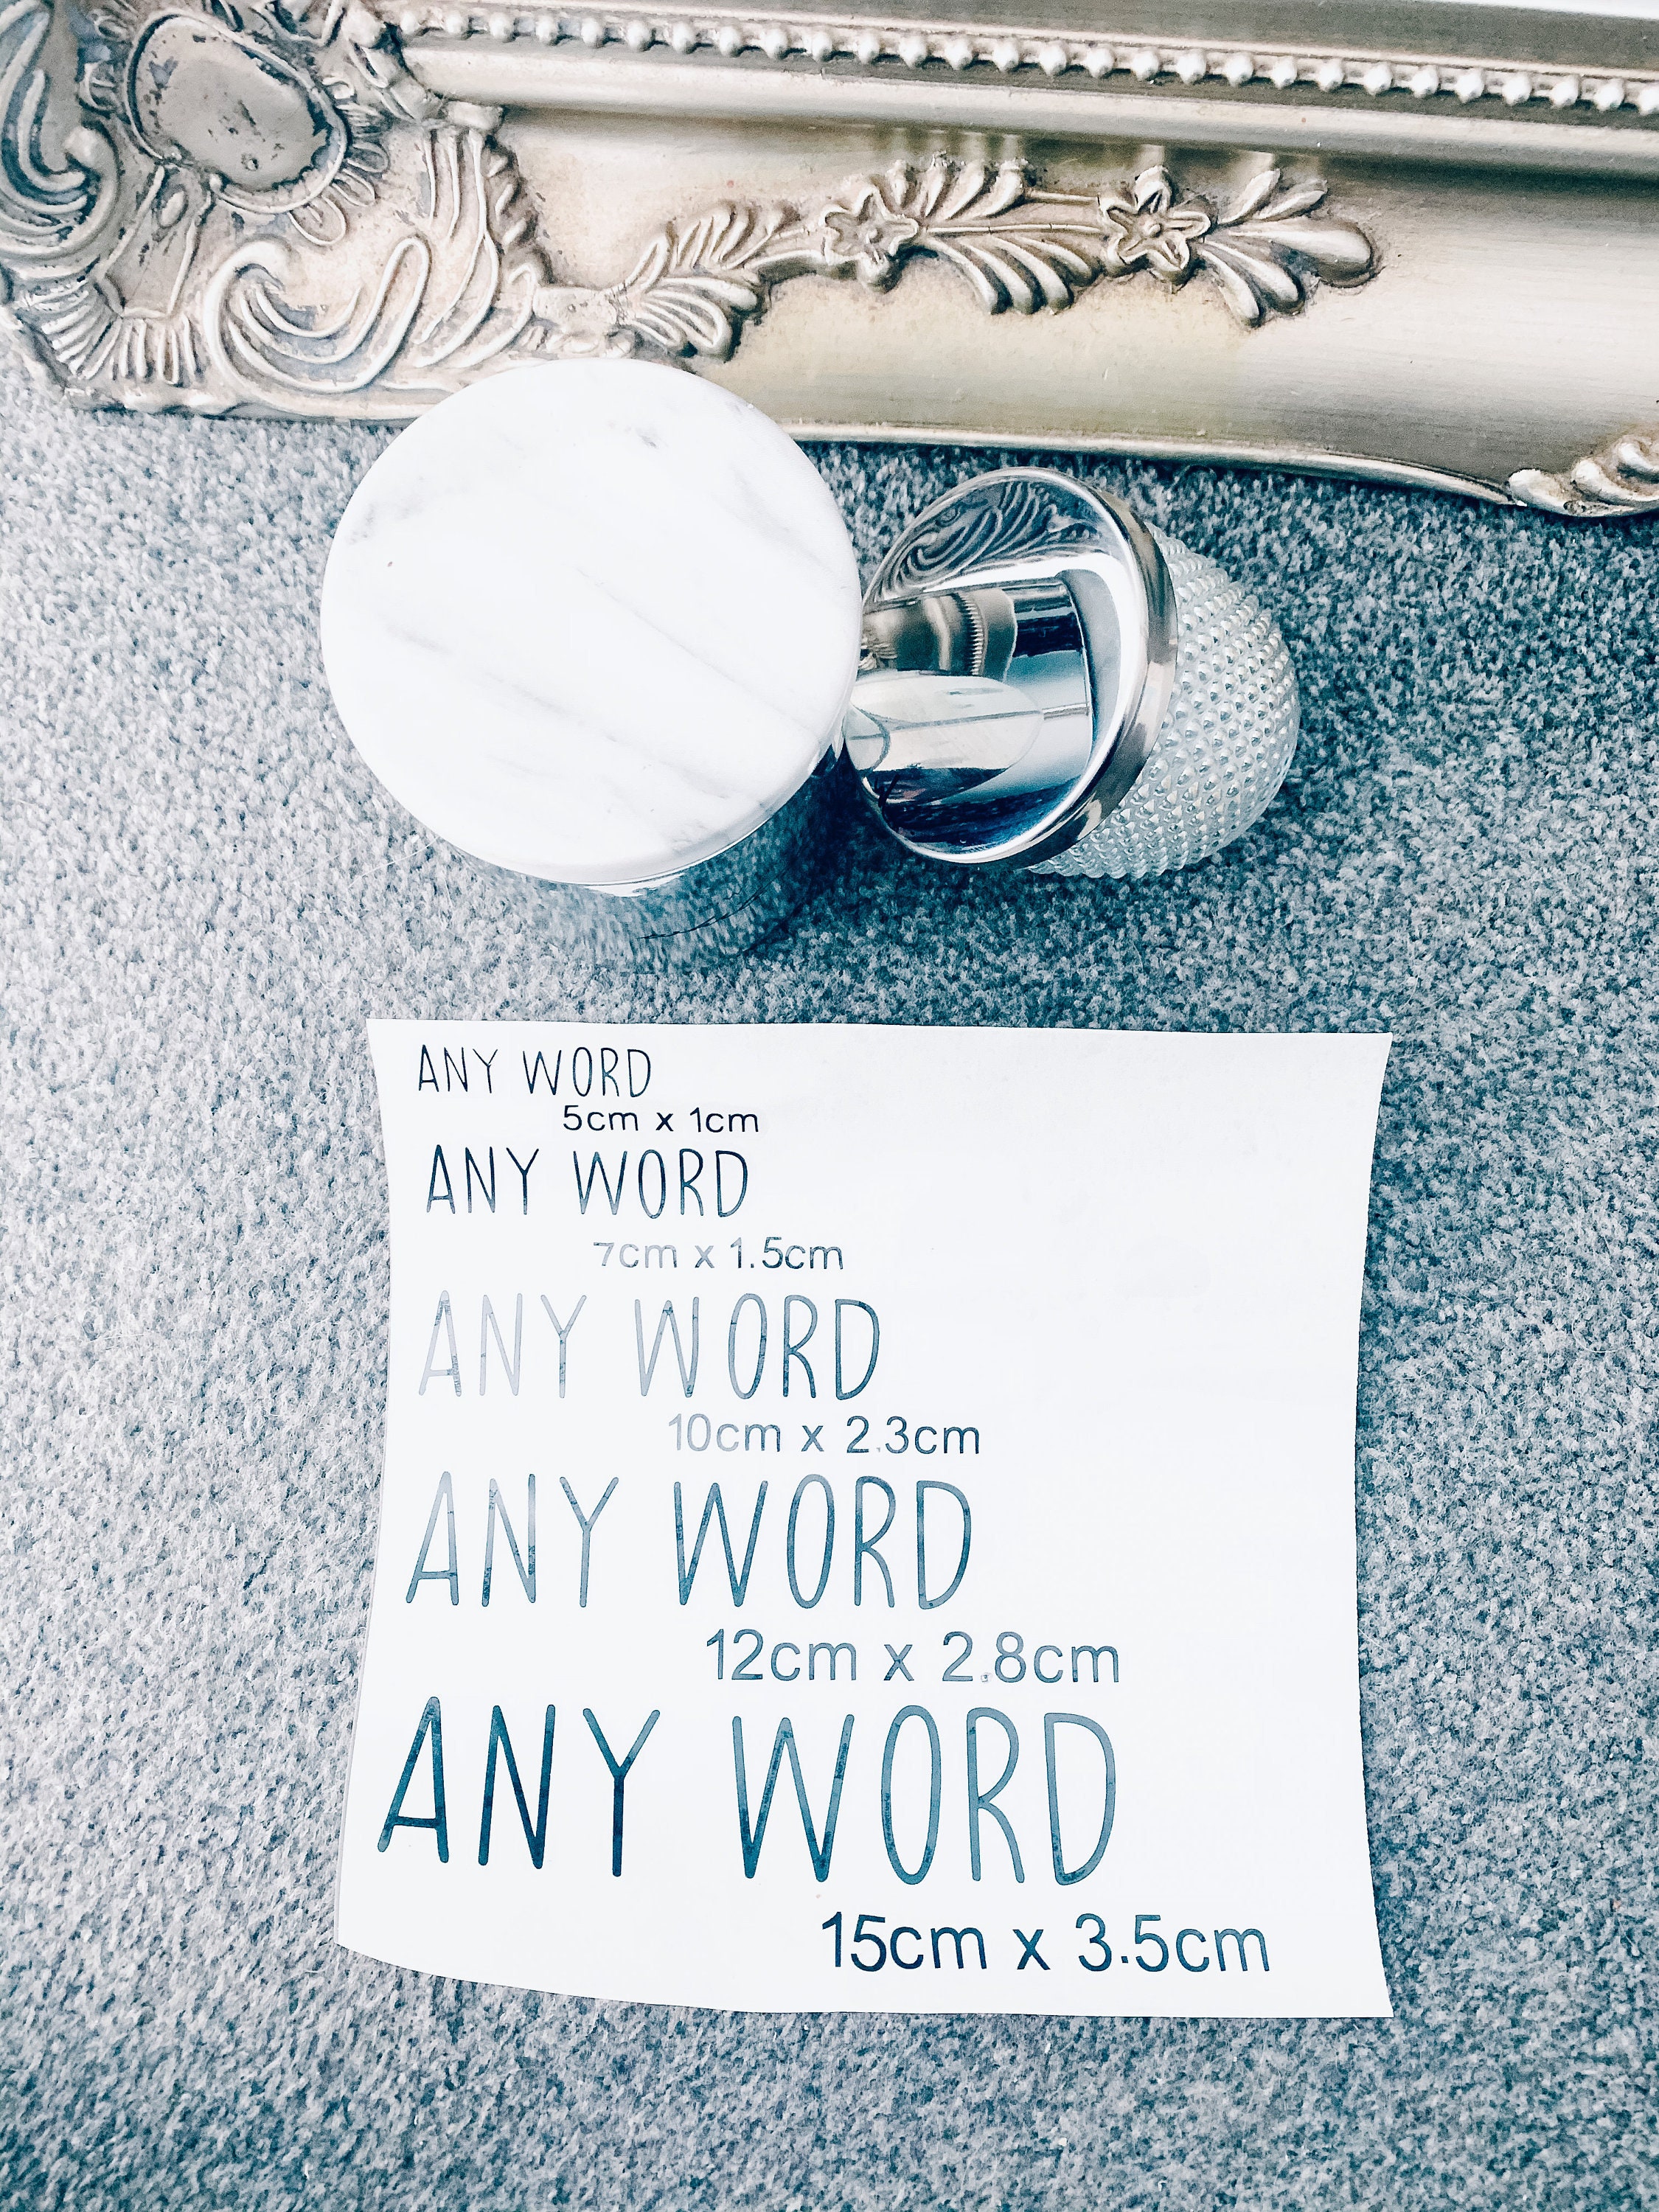 ANY WORD
5cm x 1cm
ANY WORD
7cm x 1.5cm
ANY WORD
10cm x 2.3cm
ANY WORD
12cm x 2.8cm
ANY WORD
15cm x 3.5cm